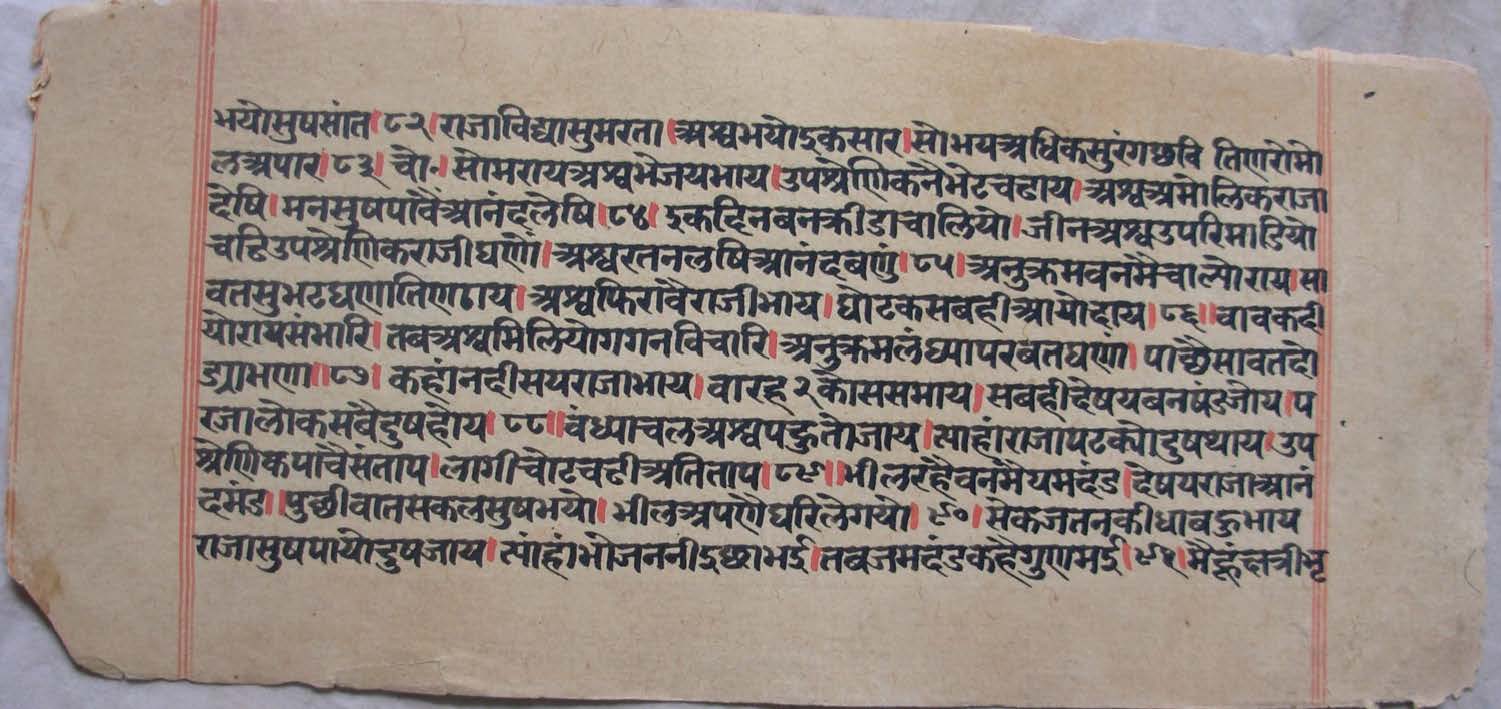 भयोसुषसांत।८२।राजाविद्यासुमरता।अश्वभयोइकसार।सोभयअधिकसुरंगछवि तिणरोमो
लअपार।८३। चौ०। सोमरायअश्वभेजयभाय।उपश्रेणिकनैभेटचढाय।अश्वअमोलिकराजा
देषि।मनसुषपावैंआनंदलेषि।८४। इकदिनबनक्रीडाचालियो।जीनअश्वउपरिमाडियो
चढिउपश्रेणिकराजीघणों।अश्वरतनलषिआनंदबणुं।८५।अनुक्रमवनमैचाल्योराय।सा
वतसुभटघणातिणठाय।अश्वफिरावैराजीभाय।घोटकसबहीआयोदाय।८६॥चाबकदी
योरायसंभारि।तबअश्वमिलियोगगनविचारि।अनुक्रमलंघ्यापरबतघणां। पाछैसावतदो
ड्याभणा॥८७। कहांनदीसयराजाभाय।वारह२कोससमाय।सबहीदेषयबनषंडजोय।प
रजालोकसबैदुषहोय।८८॥वंध्याचलअश्वपहुतोजाय।त्याहांराजापटक्योदुषथाय।उप
श्रेणिकपावैसंताप।लागीचोटचढीअतिताप।८९॥भीलरहैवनमैयमदंड।देषयराजाआनं
दमंड॥पुछीवातसकलसुषभयो।भीलअपणैघरिलेगयो।९०।सेकजतनकीधाबहुभाय
राजासुषपायोदुषजाय।त्यांहांभोजननीइछाभई।तबजमदंडकहैगुणमई।९१।मैहूंक्षत्रीभृ